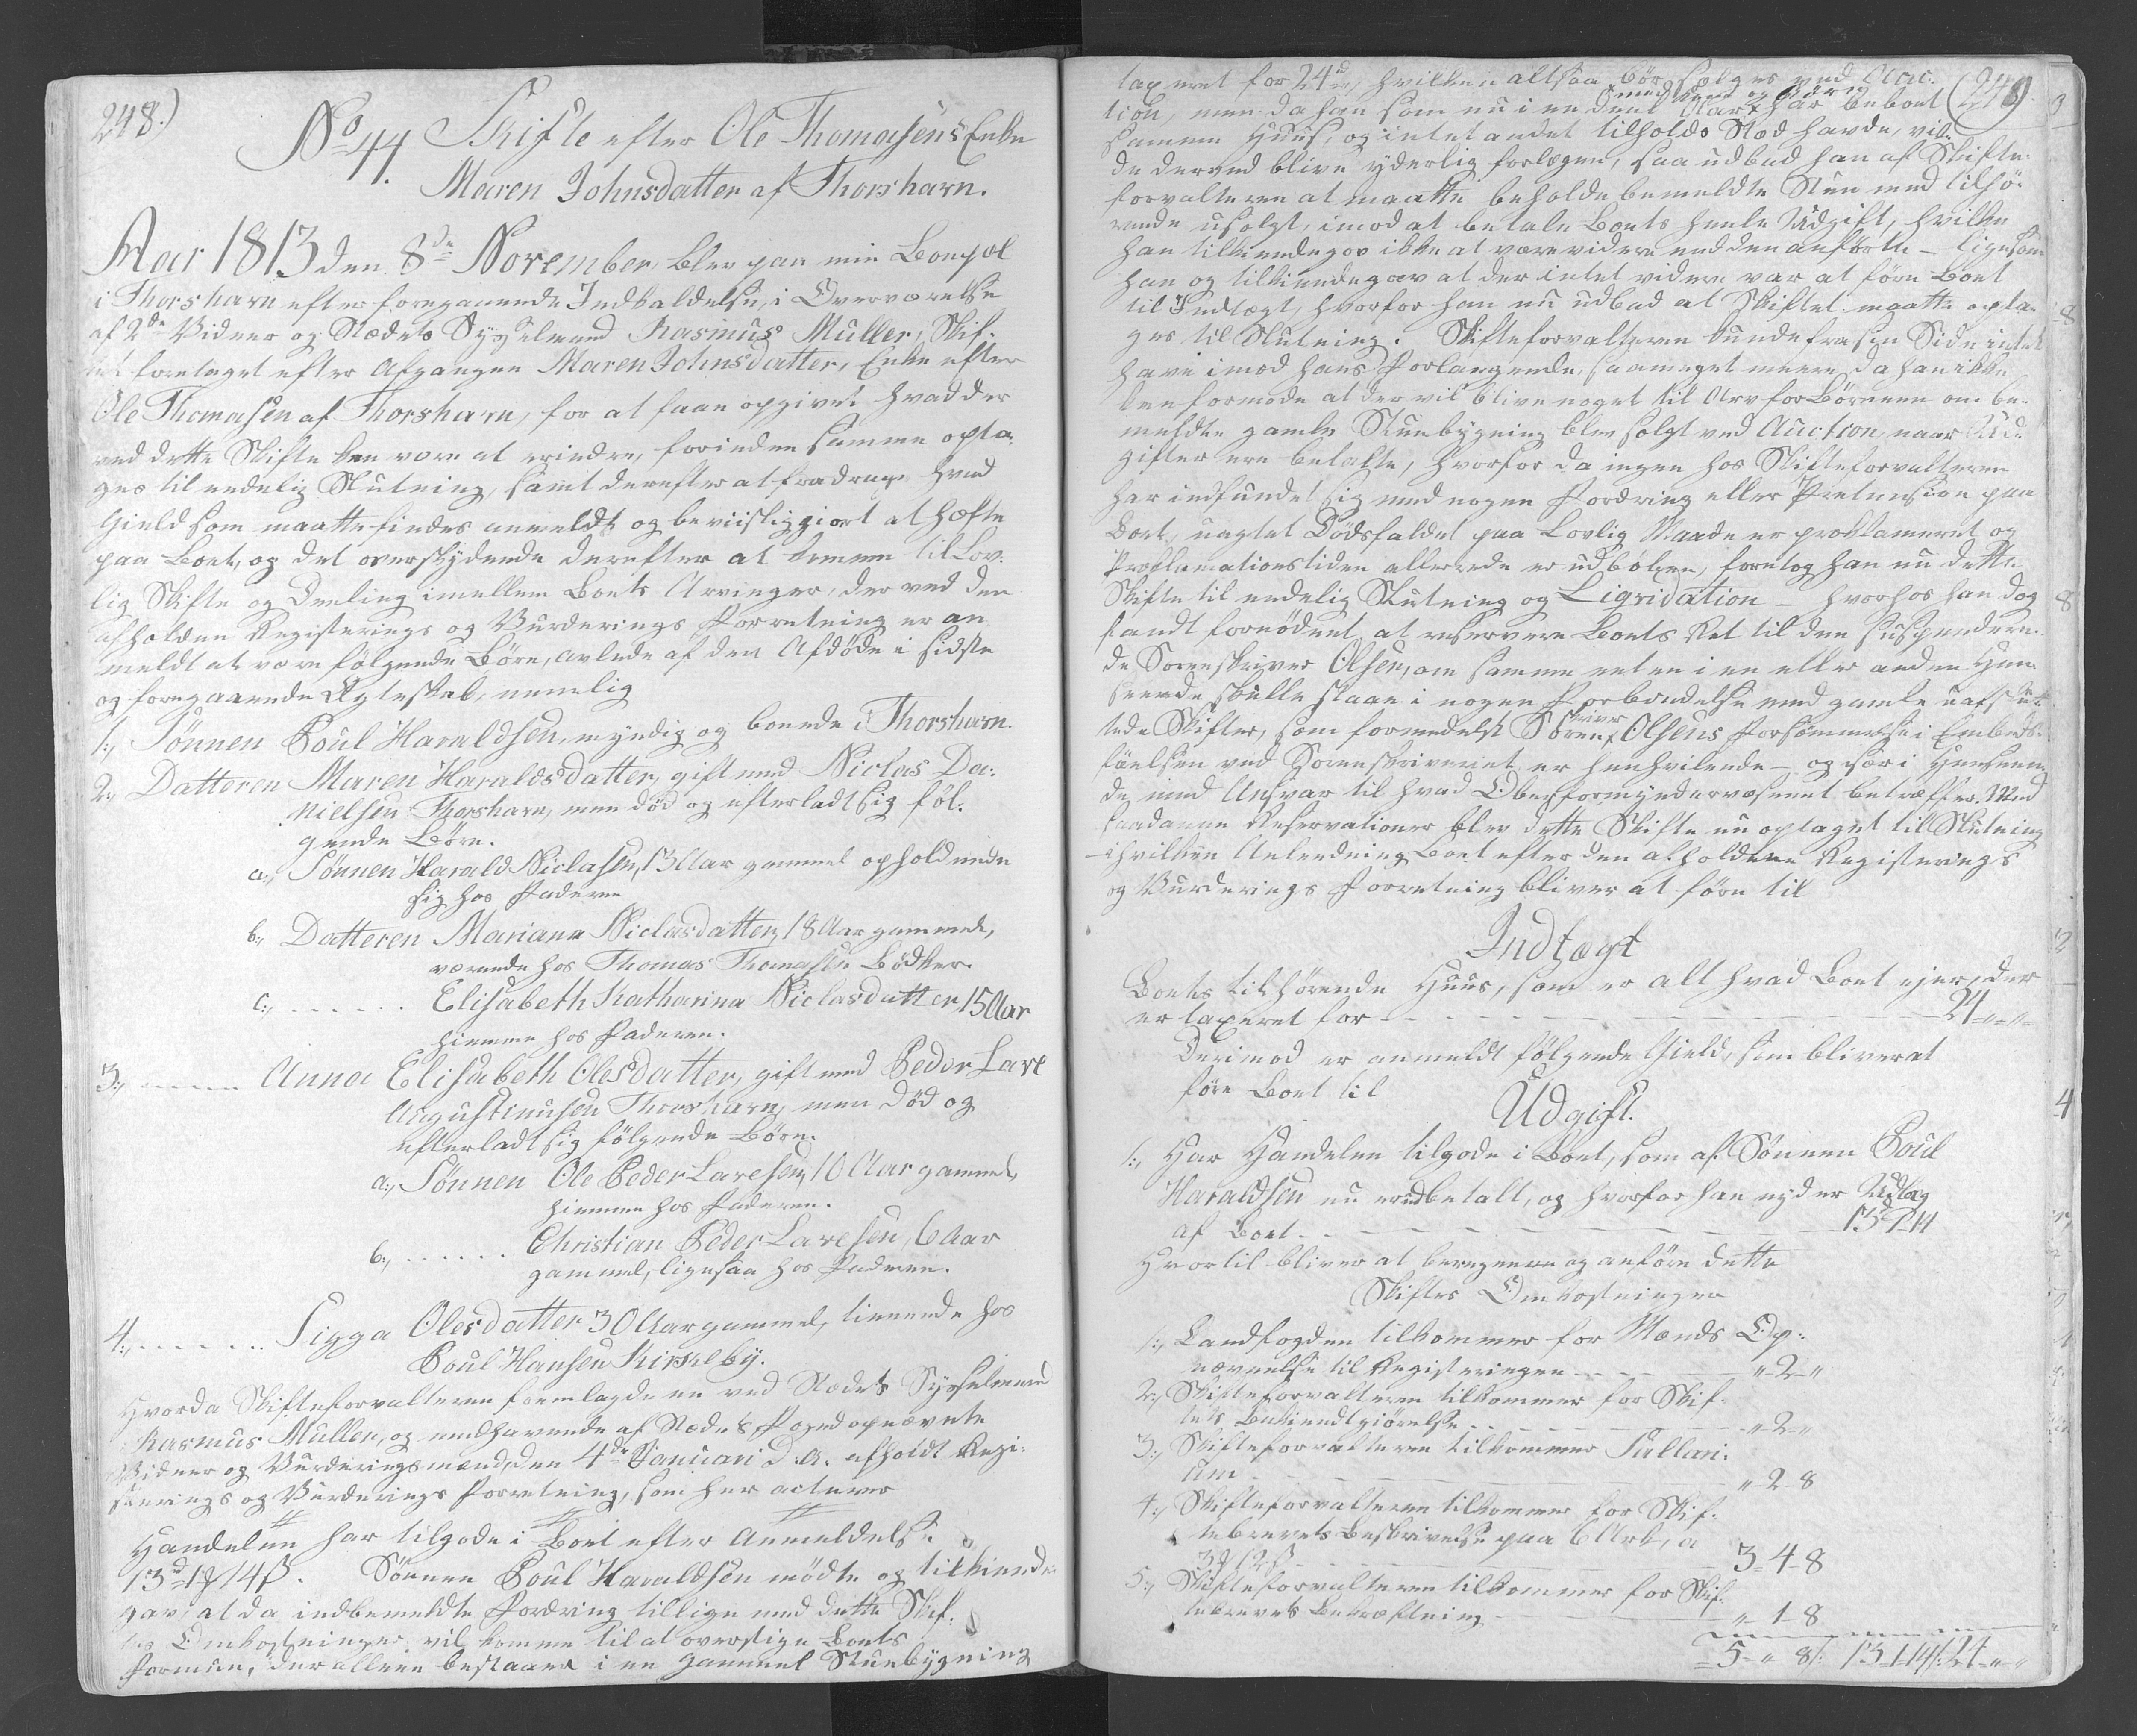 248.)
No 44. Skifte efter Ole Thomasens Enke
Maren Johnsdatter af Thorshavn.
Aar 1813 den 8de November blev paa min Bopæl
i Thorshavn efter foregaaende Indkaldelse, i Overværelse
af 2de Vidner og Stædets Sysselmand Rasmus Müller, Skif-
tet foretaget efter Afgangne Maren Johnsdatter, Enke efter
Ole Thomasen af Thorshavn, for at faae opgivet hvad der
ved dette Skifte kan være at erindre, forinden samme opta-
ges til endelig Slutning, samt derefter at fradrage hvad
Gield som maatte findes anmeldt og beviisliggiort at hæfte
paa Boet, og det overskydende derefter at komme til Lov-
lig Skifte og Deeling imellem Boets Arvinger, der ved den
afholdne Registerings og Vurderings Forretning er an-
meldt at være følgende Børn, avlede af den Afdøde i sidste
og foregaaende Ægteskab, nemlig
1., Sønnen Poul Haraldsen, myndig og boende i Thorshavn.
2., Datteren Maren Haraldsdatter, gift med Niclas Da-
nielsen Thorshavn, men død og efterladt sig føl-
gende Børn.
a., Sønnen Harald Niclasen, 13 Aar gammel opholdende
sig hos Faderen
b., Datteren Mariana Niclasdatter, 18 Aar gammel,
værende hos Thomas Thomasen Bødker.
c., ...... Elisabeth Katharina Niclasdatter, 15 Aar
hiemme hos Faderen.
3., ...... Anna Elisabeth Olesdatter, gift med Peder Lave
Augustinusen Thorshavn, men død og
efterladt sig følgende Børn.
a., Sønnen Ole Peder Lavesen, 10 Aar gammel,
hiemme hos Faderen.
b., ...... Christian Peder Lavesen, 6 Aar
gammel, ligesaa hos Faderen.
4., ...... Sigga Olesdatter 30 Aar gammel, tienende hos
Poul Hansen Kirkeby.
Hvorda Skifteforvalteren fremlagde en ved Stædets Sysselmand
Rasmus Müller, og medhavende af Stædets Foged opnævnte
Vidner og Vurderingsmænd, den 4de Januari d. A. afholdt Regi-
sterings og Vurderings Forretning, som her acteres
Handelen har tilgode i Boet efter Anmeldelse
13rd 1 14 ß. Sønnen Poul Haraldsen mødte og tilkiende-
gav, at da indbemeldte Fordring tillige med dette Skif-
tes Omkostninger vil komme til at overstige Boets
Formue, der alleene bestaaer i en gammel Stuebygning
taxeret for 24rd, hvilken altsaa bør sælges ved Auc-
tion, men da han som nu i en deel Aar med Kone og Børn har beboet (249.
samme Huus, og intet andet tilholds Sted havde, vil-
de derved blive yderlig forlegen, saa udbad han af Skifte-
forvalteren at maatte beholde bemeldte Stue med tilhø-
rende usolgt, imod at betale Boets heele Udgift, hvilken
han tilkiendegav ikke at være videre end den anførte - ligesom
han og tilkiendegav at der intet videre var at føre Boet
til Indtægt, hvorfor han nu udbad at Skiftet maatte opta-
ges til Slutning. Skifteforvalteren kunde fra sin Side intet
have imod hans Forlangende, saameget meere, da han ikke
kan formode at der vil blive noget til Arv for Børnene om be-
meldte gamle Stuebygning blev solgt ved Auction, naar Ud-
gifter ere betalte, hvorfor da ingen hos Skifteforvalteren
har indfundet sig med nogen Fordring eller Prætension paa
Boet, uagtet Dødsfaldet paa Lovlig Maade er proklameret og
Proklamationstiden allerede er udløben, foretog han nu dette
Skifte til endelig Slutning og Liqvidation - hvorhos han dog
fandt fornødent at reservere Boets Ret til den suspendere-
de Sorenskriver Olsen, om samme enten i en eller anden Hen-
seende skulle staae i nogen Forbindelse med gamle uafslut-
tede Skifter, som formedelst Sorenskriver Olsens Forsømmelse i Embeds-
førelsen ved Sorenskriveriet er henhvilende - og især i Henseen-
de med Ansvar til hvad Oberformynderværsenet betræffer. Med
saadanne Reservationer blev dette Skifte nu optaget til Slutning
- i hvilken Anledning Boet efter den afholdene Registerings
og Vurderings Forretning bliver at føre til
Indtægt
Boets tilhørende Huus, som er alt hvad Boet ejer, der
er taxeret for - - - 24 - " - "
Derimod er anmeldt følgende Gield, som bliver at
føre Boet til
Udgift.
1., Har Handelen tilgode i Boet, som af Sønnen Poul
Haraldsen nu er udbetalt, og hvorfor han nyder Udlæg
af Boet - - - 13 1 14
Hvortil bliver at beregnes og anføre dette
Skiftes Omkostninger
1., Landfogden tilkommer for Mænds Op-
nævnelse til Registeringen - - " - 2 - "
2., Skifteforvalteren tilkommer for Skif-
tets Bekiendtgiørelse - - " - 2 - "
3., Skifteforvalteren tilkommer Sallari-
um - - " - 2 8
4., Skifteforvalteren tilkommer for Skif-
tebrevets Beskrivelse paa 6 Ark, a
3 12 ß - - 3 - 4 - 8
5., Skifteforvalteren tilkommer for Skif-
tebrevets Bekræftning - - " 1 - 8
5 - " 8 13 1 14 24 - " - "